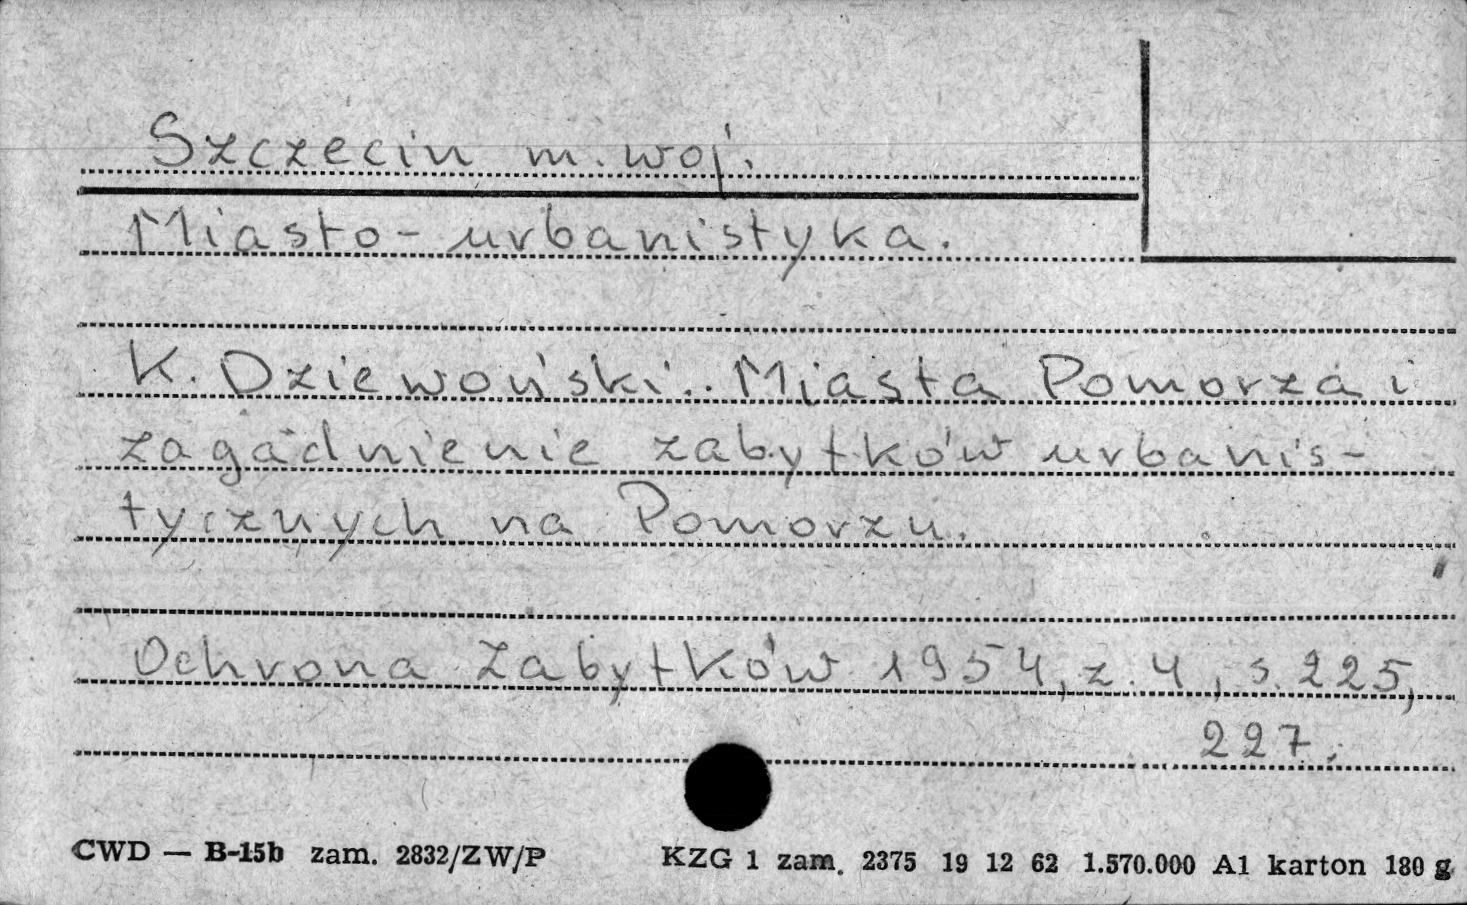 Szczecin m. woj.
Miasto - urbanistyka.
K. Dziewoński. Miasta Pomorza i
zagadnienie zabytków urbanis-
tycznych na Pomorzu.
Ochrona Zabytków 1954, z. 4, s. 225,
227.
CWD — B-15b zam. 2832/ZW/P KZG 1 zam. 2375 19 12 62 1.570.000 A1 karton 180 g